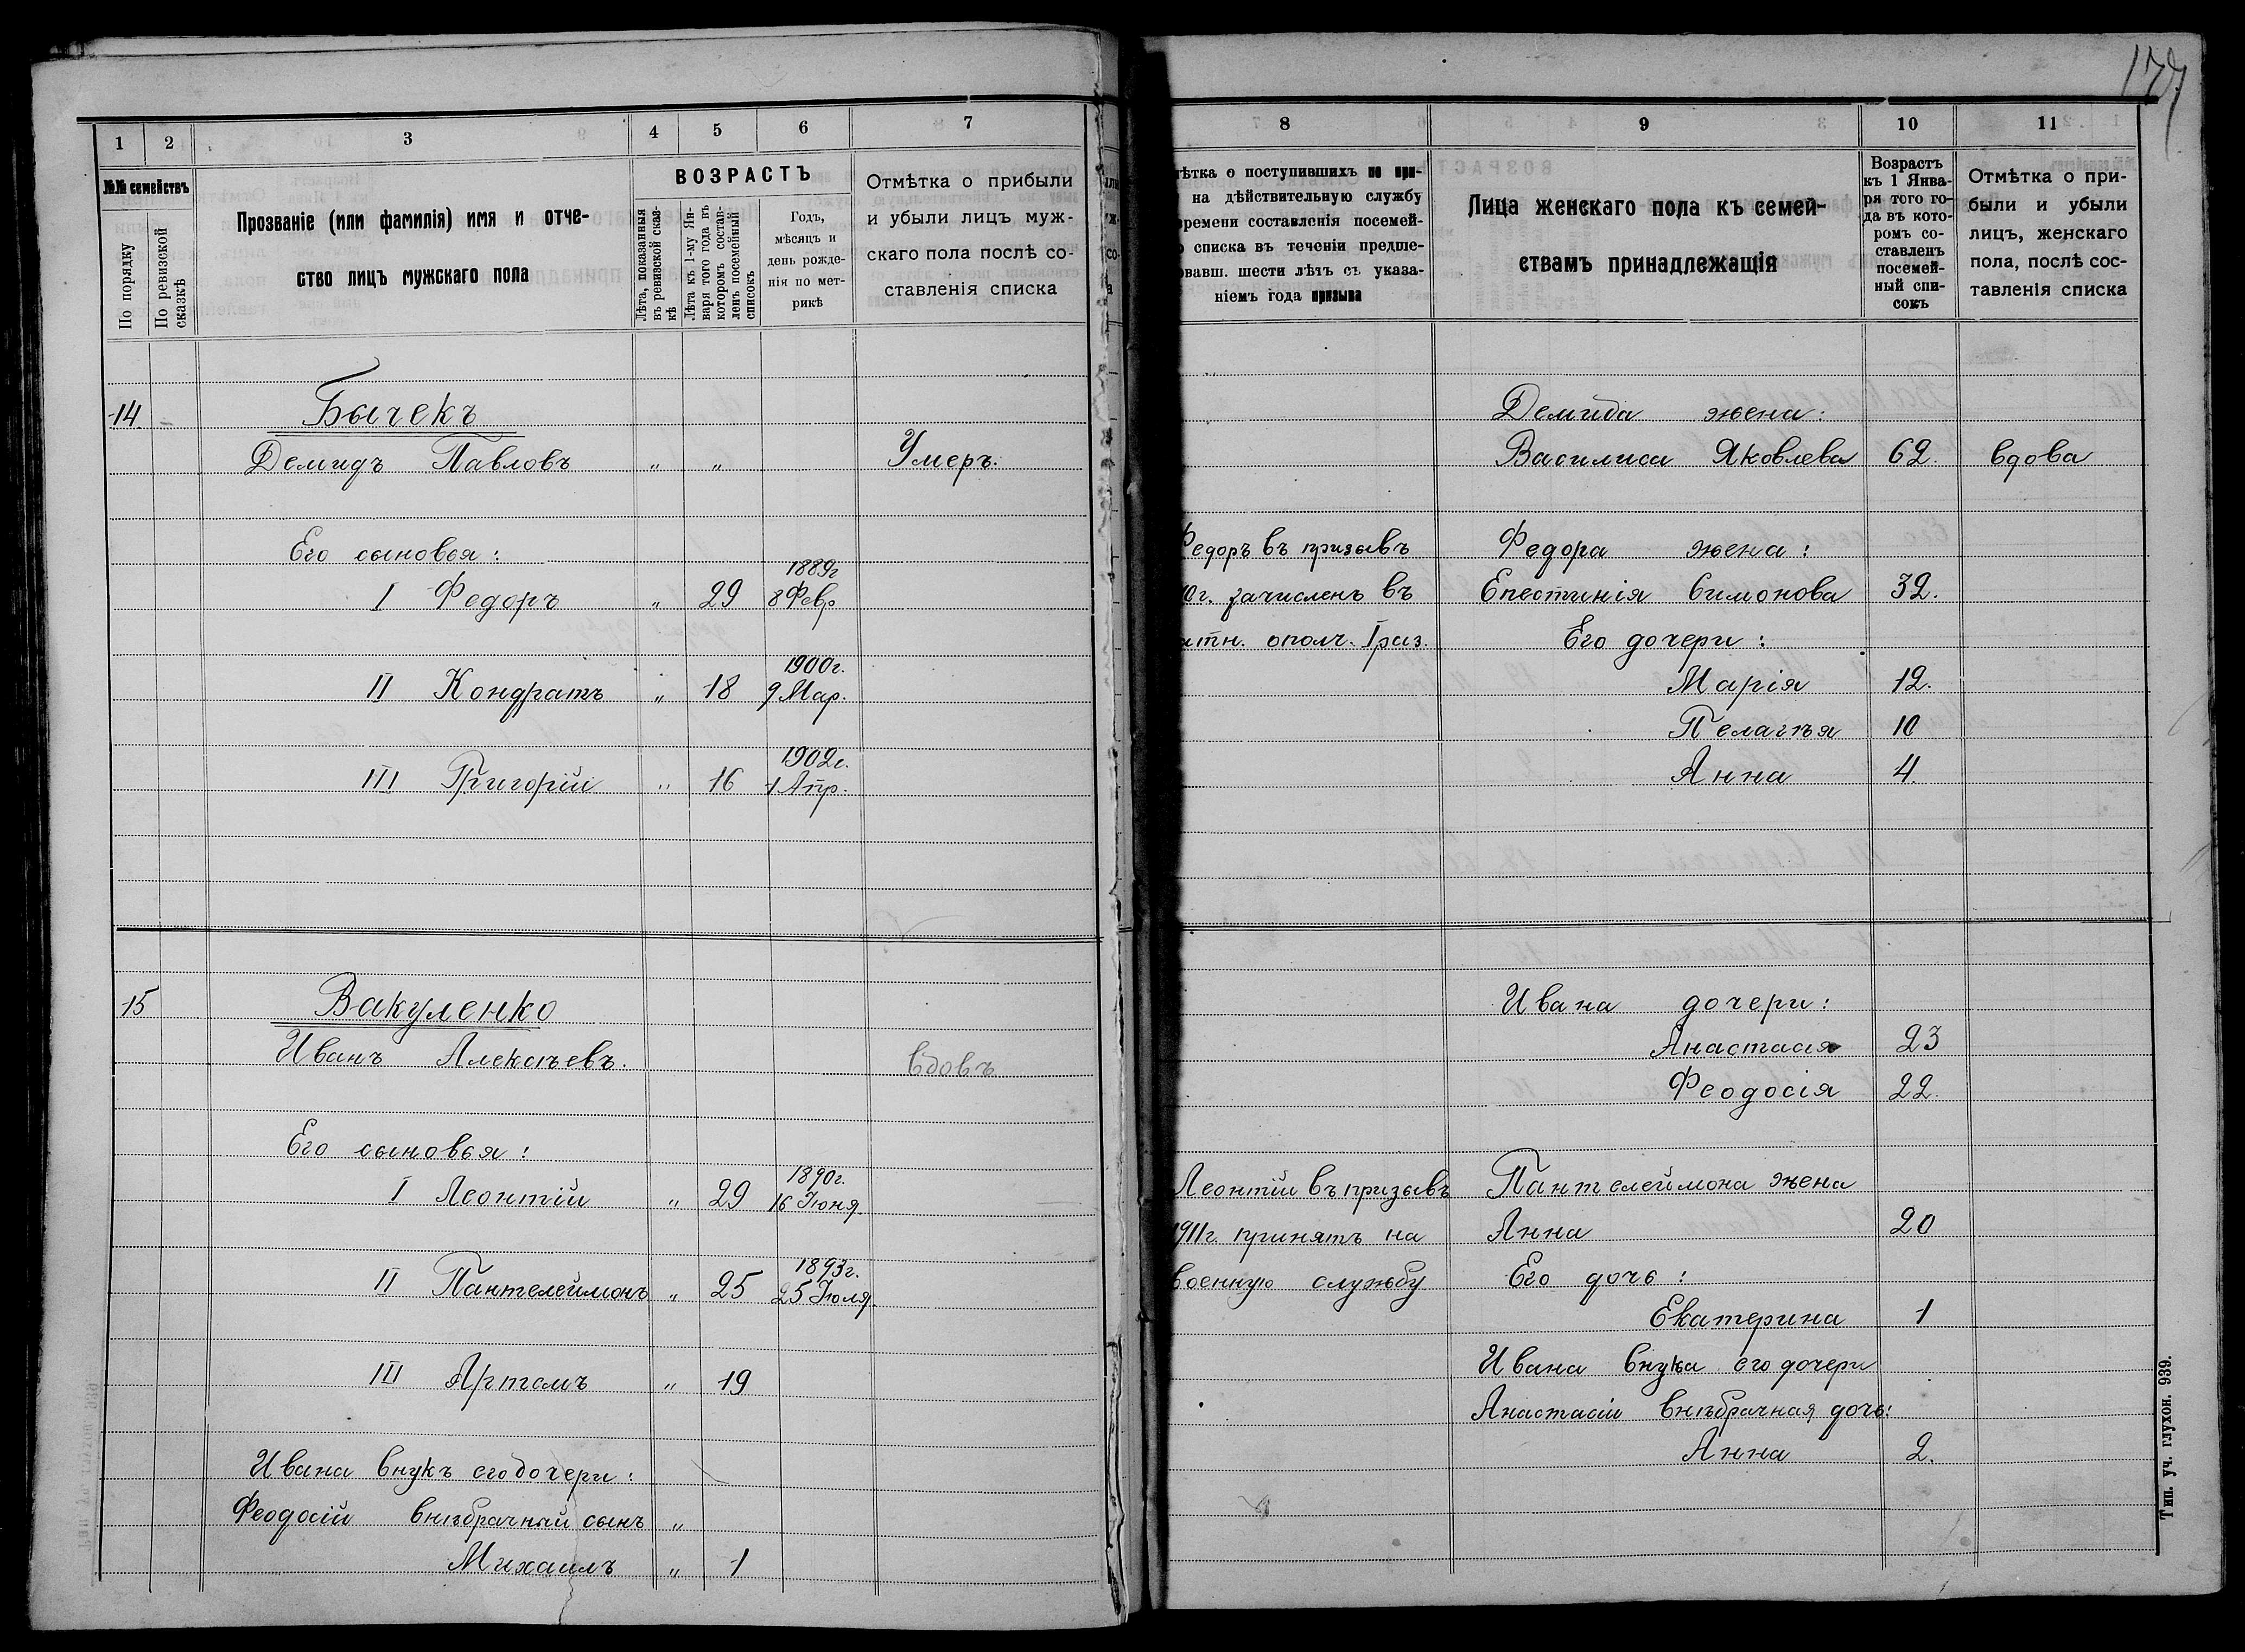 177
1
2
3
4
5
6
7
№№ семействъ
По порядку
По ревизской сказкѣ
Прозваніе (или фамилія) имя и отче-
ство лицъ мужскаго пола
ВОЗРАСТЪ
Лѣта, показанныя
въ ревизской сказ-
кѣ
Лѣта къ 1-му Ян-
варя того года въ
которомъ состав-
ленъ посемейный
списокъ
Годъ,
мѣсяцъ и
день рожде-
нія по мет-
рикѣ
Отмѣтка о прибыли
и убыли лицъ муж-
скаго пола послѣ со-
ставленія списка
14
Бычекъ
Демидъ Павловъ " " Умеръ.
Его сыновья:
1889г
I Федоръ " 29 8 Февр
1900г.
II Кондратъ " 18 9 Мар.
1902г.
III Григорій " 16 1 Апр.
15
Вакуленко
Иванъ Алексѣевъ. вдовъ
Его сыновья:
1890г.
I Леонтій " 29 16 Іюня
1893г.
II Пантелеймонъ " 25 25 Іюля.
III Артемъ " 19
Ивана внукъ его дочери:
Феодосіи внѣбрачный сынъ "
Михаилъ " 1
8
9
10
11
ѣтка о поступившихъ по при-
на дѣйствительную службу
времени составленія посемей-
о списка въ теченіи предше-
овавш. шести лѣтъ съ указа-
ніемъ года призыва
Лица женскаго пола къ семей-
ствамъ принадлежащія
Возрастъ
къ 1 Янва-
ря того го-
да въ кото-
ромъ со-
ставленъ
посемей-
ный спи-
сокъ
Отмѣтка о при-
были и убыли
лицъ, женскаго
пола, послѣ сос-
тавленія списка
Демида жена:
Василиса Яковлева 62. вдова
Федоръ въ призывъ Федора жена:
10г. зачисленъ въ Епестинія Симонова 32.
атн. ополч. I раз. Его дочери:
Марія 12.
Пелагѣя 10
Анна 4.
Ивана дочери:
Анастасія 23
Феодосія 22.
Леонтій въ призывъ Пантелеймона жена
1911г. принятъ на Анна 20
военную службу Его дочь:
Екатерина 1
Ивана внука его дочери
Анастасіи внѣбрачная дочь:
Анна 2.
Тип. уч. глухон. 939.